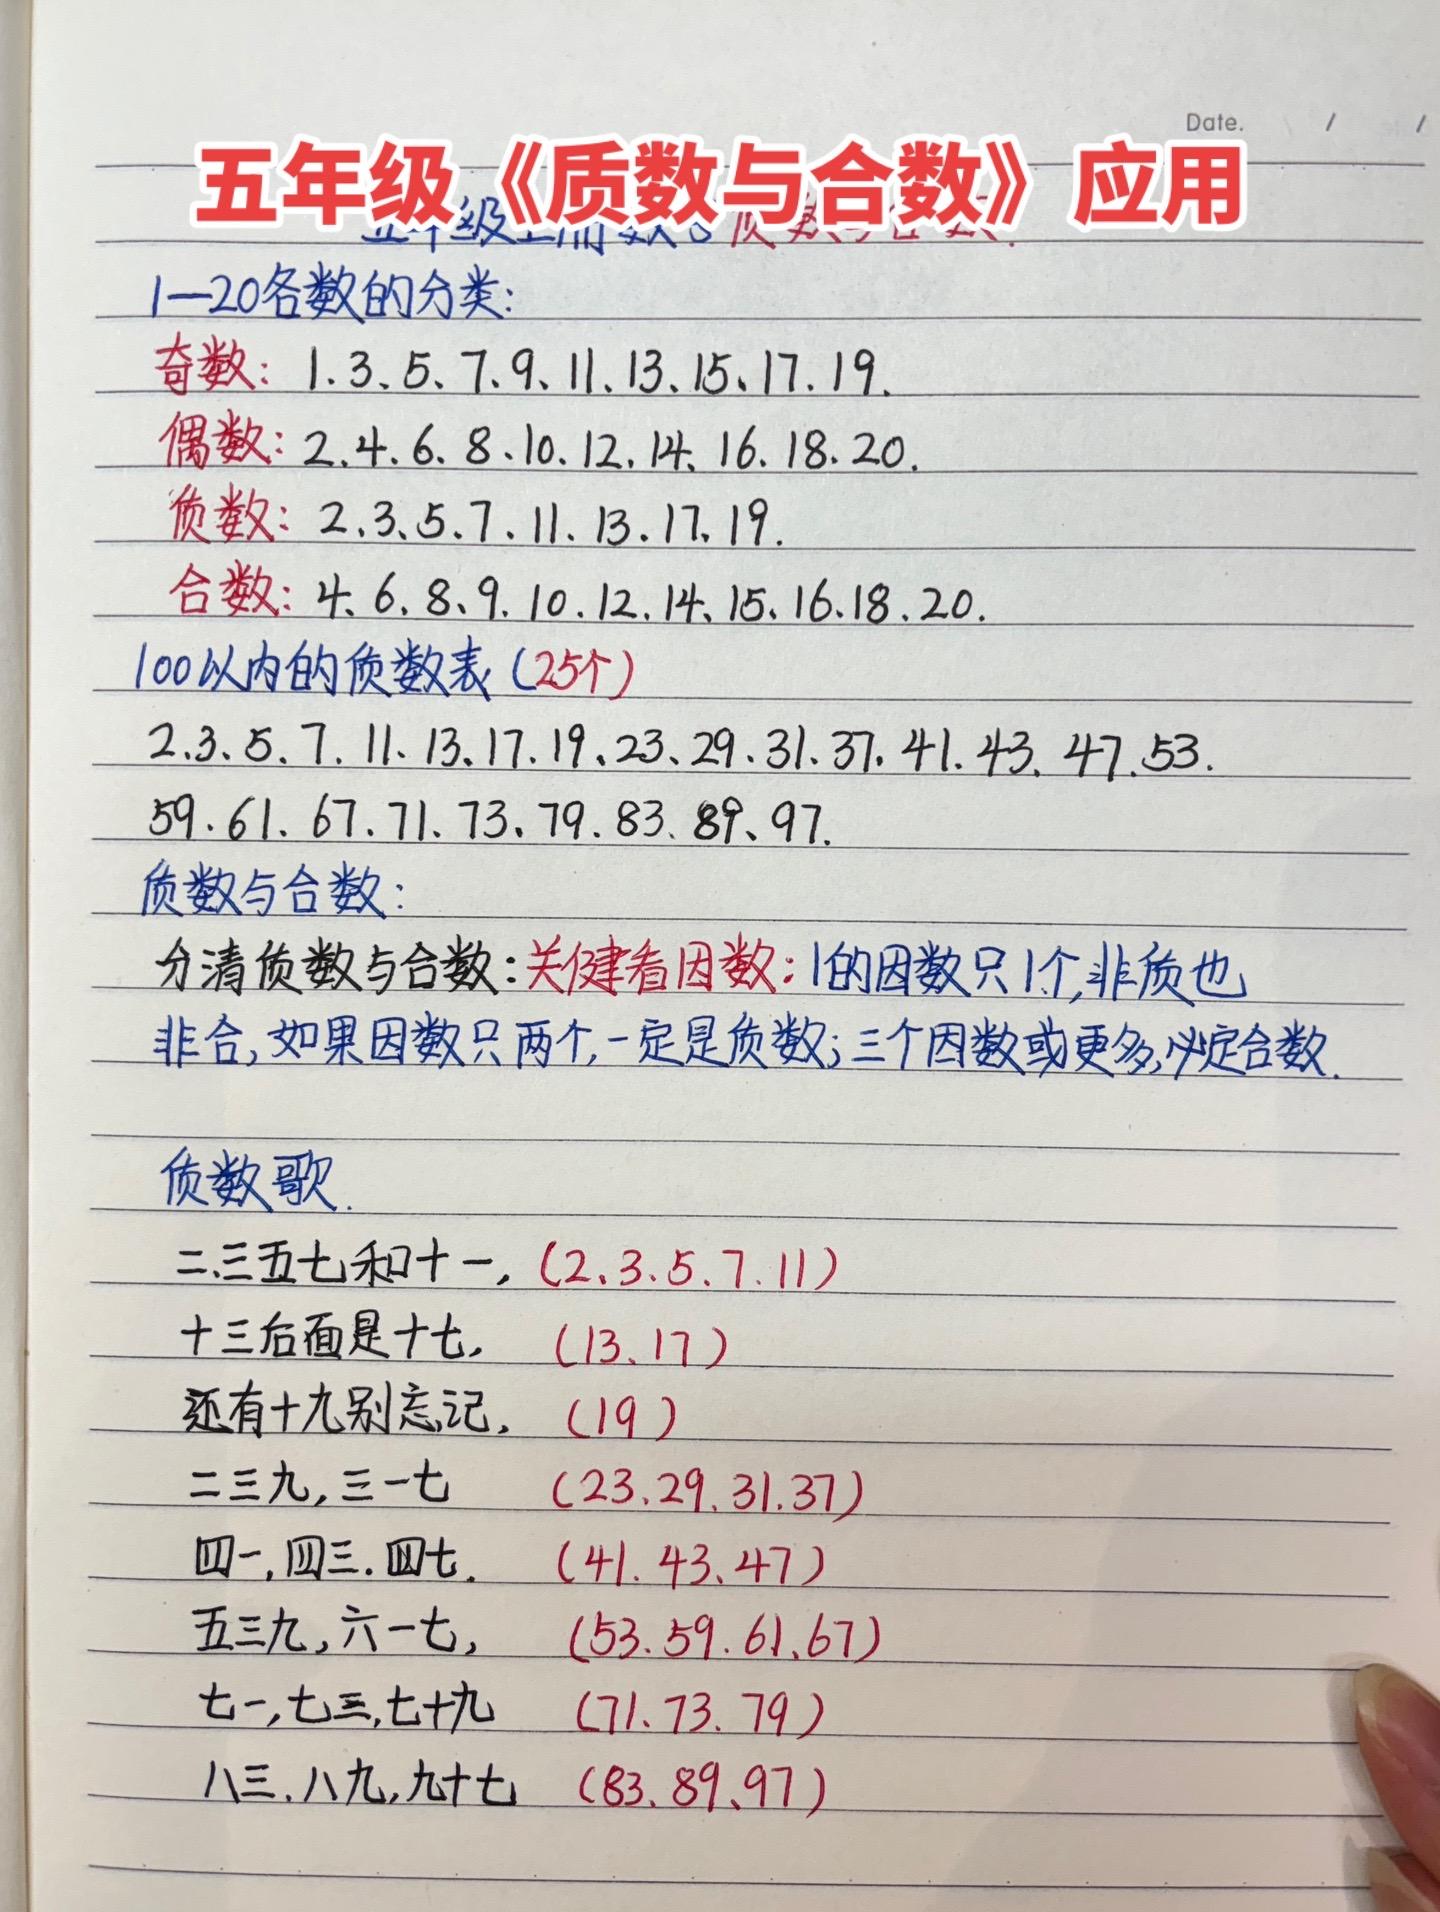 Date. / /
五年级《质数与合数》应用
1—20各数的分类:
奇数: 1.3、5、7、9、11、13、15、17、19.
偶数: 2.4、6、8、10、12、14、16、18、20.
质数: 2、3、5、7、11、13、17、19.
合数: 4、6、8、9、10、12、14、15、16、18、20.
100以内的质数表(25个)
2.3、5、7、11、13、17、19、23、29、31、37、41、43、47、53.
59、61、67、71、73、79、83、89、97.
质数与合数:
分清质数与合数:关健看因数:1的因数只1个,非质也
非合,如果因数只两个,一定是质数;三个因数或更多,必定合数.
质数歌.
二、三五七和十一,(2、3、5、7、11)
十三后面是十七, (13、17)
还有十九别忘记, (19)
二三九,三一七 (23、29、31、37)
四一,四三、四七. (41、43、47)
五三九,六一七, (53、59、61、67)
七一,七三,七十九 (71、73、79)
八三、八九,九十七 (83、89、97)